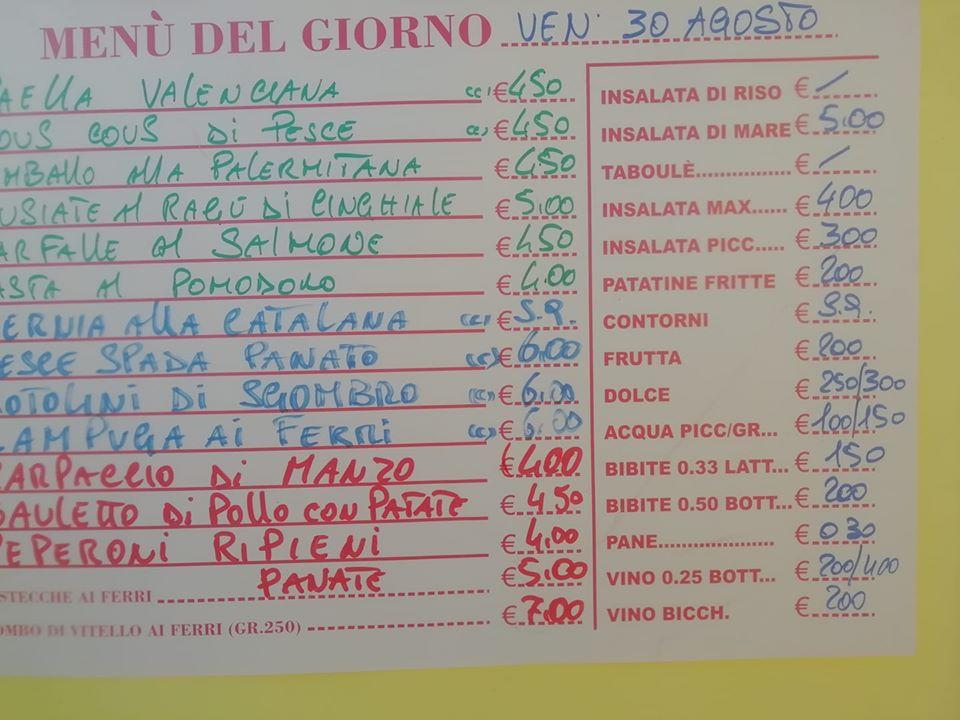 MENÙ DEL GIORNO VEN. 30 AGOSTO
AELLA VALENCIANA (c) € 450
OUS COUS DI PESCE (c) € 450
MBALLO ALLA PALERMITANA € 450
USIATE AL RAGÙ DI CINGHIALE € 5.00
ARFALLE AL SALMONE € 450
ASTA AL POMODORO € 4.00
ERNIA ALLA CATALANA (c) € S.Q.
ESCE SPADA PANATO (c) € 6.00
OTOLINI DI SGOMBRO (c) € 6.00
LAMPUGA AI FERRI (c) € 6.00
CARPACCIO DI MANZO € 4.00
GAULETTO DI POLLO CON PATATE € 4.50
PEPERONI RIPIENI € 4.00
STECCHE AI FERRI PANATE € 5.00
OMBO DI VITELLO AI FERRI (GR.250) € 7.00
INSALATA DI RISO € /
INSALATA DI MARE € 5.00
TABOULÈ................ € /
INSALATA MAX...... € 400
INSALATA PICC..... € 300
PATATINE FRITTE € 200
CONTORNI € S.Q.
FRUTTA € 200
DOLCE € 250/300
ACQUA PICC/GR... € 100/150
BIBITE 0.33 LATT... € 150
BIBITE 0.50 BOTT... € 200
PANE.................... € 030
VINO 0.25 BOTT... € 200/400
VINO BICCH. € 200